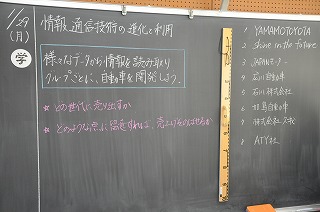 1/29
(月)
学
情報通信技術の進化と利用
様々なデータから情報を読み取り
グループごとに、自動の車を開発しよう。
★ どの世代に売り出すか
★ どのような点に留意すれば、売上げをのばせるか
1 YAMAMOTOYOTA
2 Shine in the future
3 JAPANモーター
4 自動車
5 石川株式会社
6 自動車
7 株式会社
8 ATY社